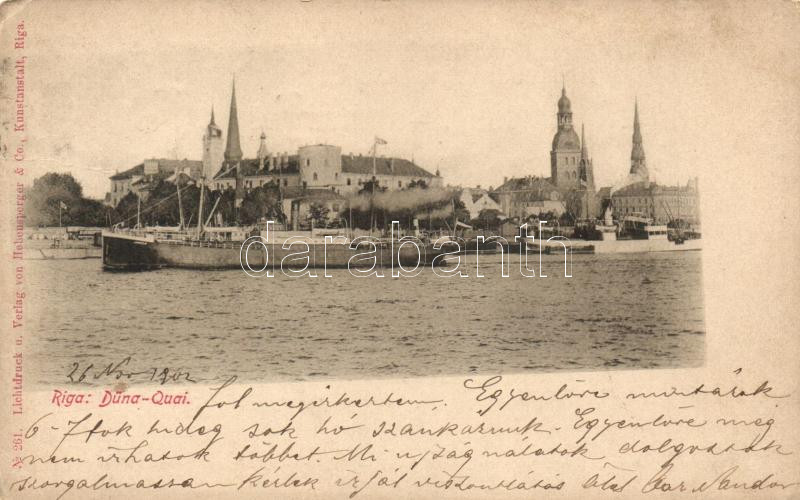 № 261. Lichtdruck u. Verlag von Hebensperger & Co., Kunstanstalt, Riga.
darabanth
26 Nov 1902
Riga: Düna-Quai.
Jol megérkeztem. Egyenlöre mintárok
6- Itt hideg sok hó szankazunk. Egyenlöre még
nem irhatok többet. Mi ujság nálatok dolgoztok
szorgalmasan kérlek irjál viszontlátás ölel Sandor